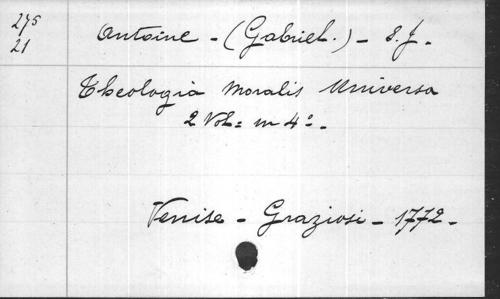 275
21
Antoine - (Gabriel.) - S.J.
Theologia Moralis Universa
2 Vol= in 4° -
Venise - Graziosi - 1772 -